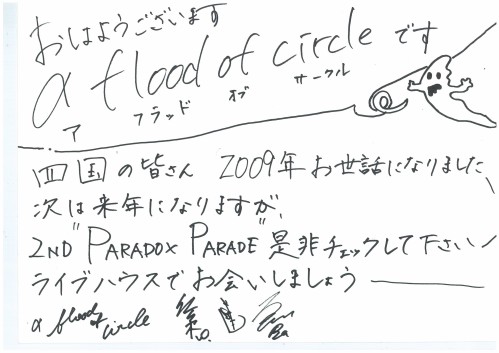 おはようございます
a flood of circle です
ア フラッド オブ サークル
四国の皆さん 2009年お世話になりました
次は来年になりますが、
2ND "PARADOX PARADE" 是非チェックして下さい
ライブハウスでお会いしましょう
a flood of circle